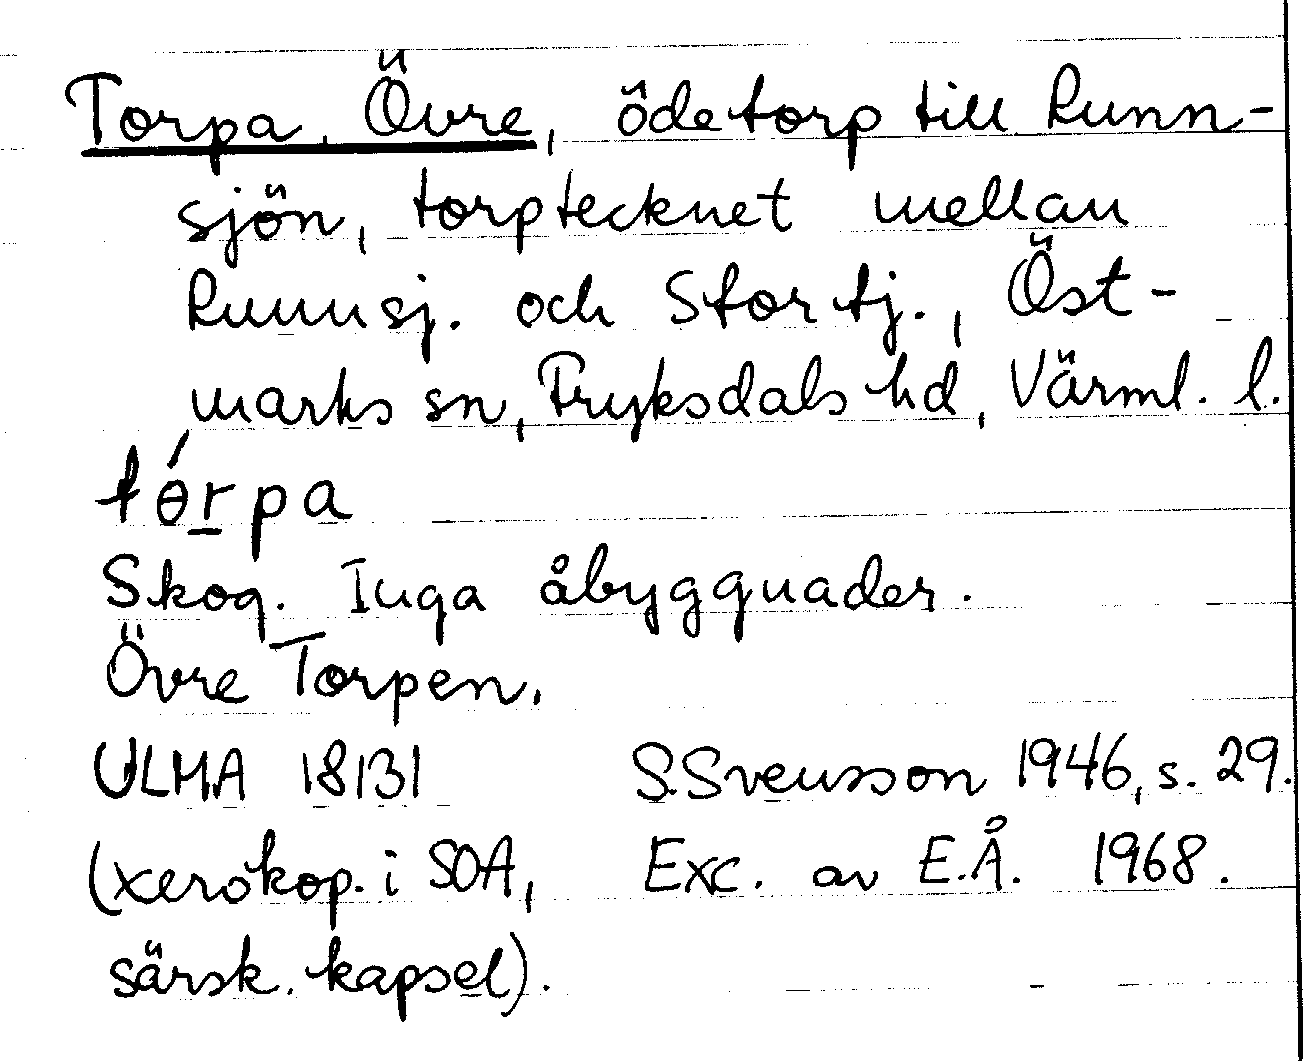 Torpa, Övre, ödetorp till Runn-
sjön, torptecknet mellan
Runnsj. och Stortj., Öst-
marks sn, Fryksdals hd, Värml. l.
tɵ́r̲pa
Skog. Inga åbyggnader.
Övre Torpen.
ULMA 18131 S.Svensson 1946, s. 29.
(xerokop. i SOA, Exc. av E.Å. 1968.
särsk. kapsel).